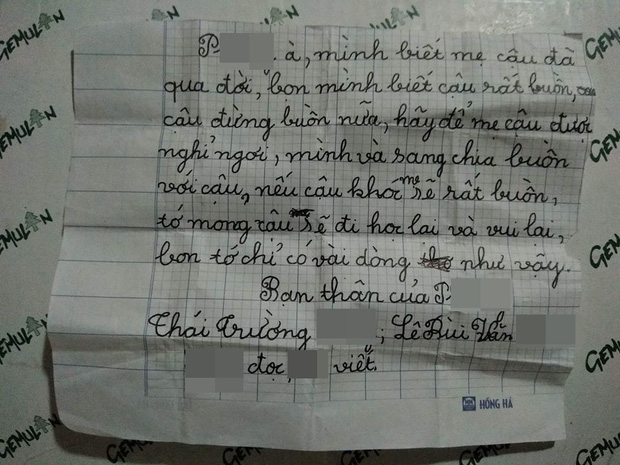 P . à, mình biết mẹ cậu đã
qua đời, bọn mình biết cậu rất buồn,
cậu đừng buồn nữa, hãy để mẹ cậu được
nghỉ ngơi, mình và sang chia buồn
với cậu, nếu cậu khóc mẹ sẽ rất buồn,
tớ mong cậu sẽ đi học lại và vui lại,
bọn tớ chỉ có vài dòng như vậy.
Bạn thân của P
Thái Trường ; Lê Bùi Vân
đọc, viết.
HỒNG HÀ
GEMULAN